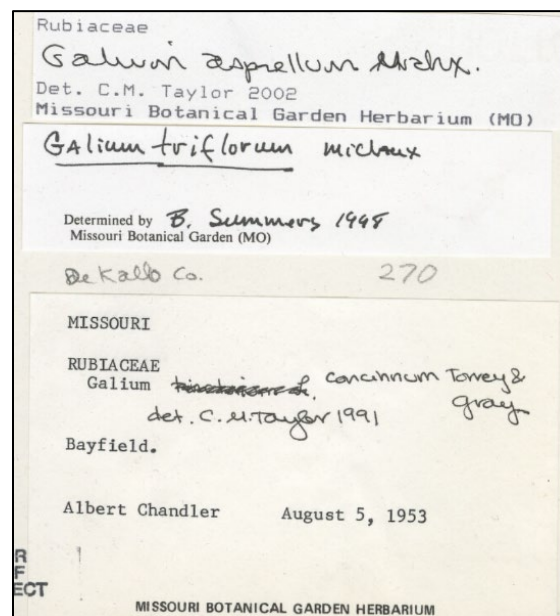 Rubiaceae
Galium asprellum Michx.
Det. C.M. Taylor 2002
Missouri Botanical Garden Herbarium (MO)
GAlium triflorum michaux
Determined by B. Summers 1998
Missouri Botanical Garden (MO)
De Kalb Co. 270
MISSOURI
RUBIACEAE
Galium concinnum Torrey &
Gray
det. C.M. Taylor 1991
Bayfield.
Albert Chandler August 5, 1953
R
F
ECT
MISSOURI BOTANICAL GARDEN HERBARIUM